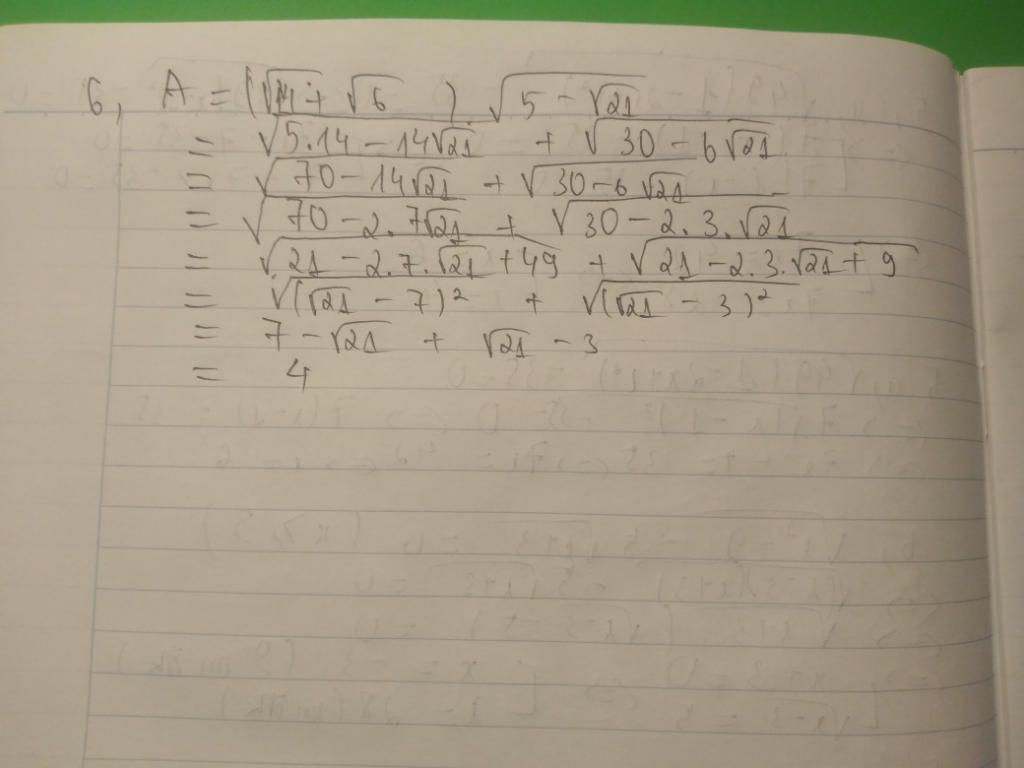 6, A = (√14 + √6 ) . √(5 - √21)
= √(5.14 - 14√21) + √(30 - 6√21)
= √(70 - 14√21) + √(30 - 6√21)
= √(70 - 2.7√21) + √(30 - 2.3.√21)
= √(21 - 2.7.√21 + 49) + √(21 - 2.3.√21 + 9)
= √(√21 - 7)² + √(√21 - 3)²
= 7 - √21 + √21 - 3
= 4